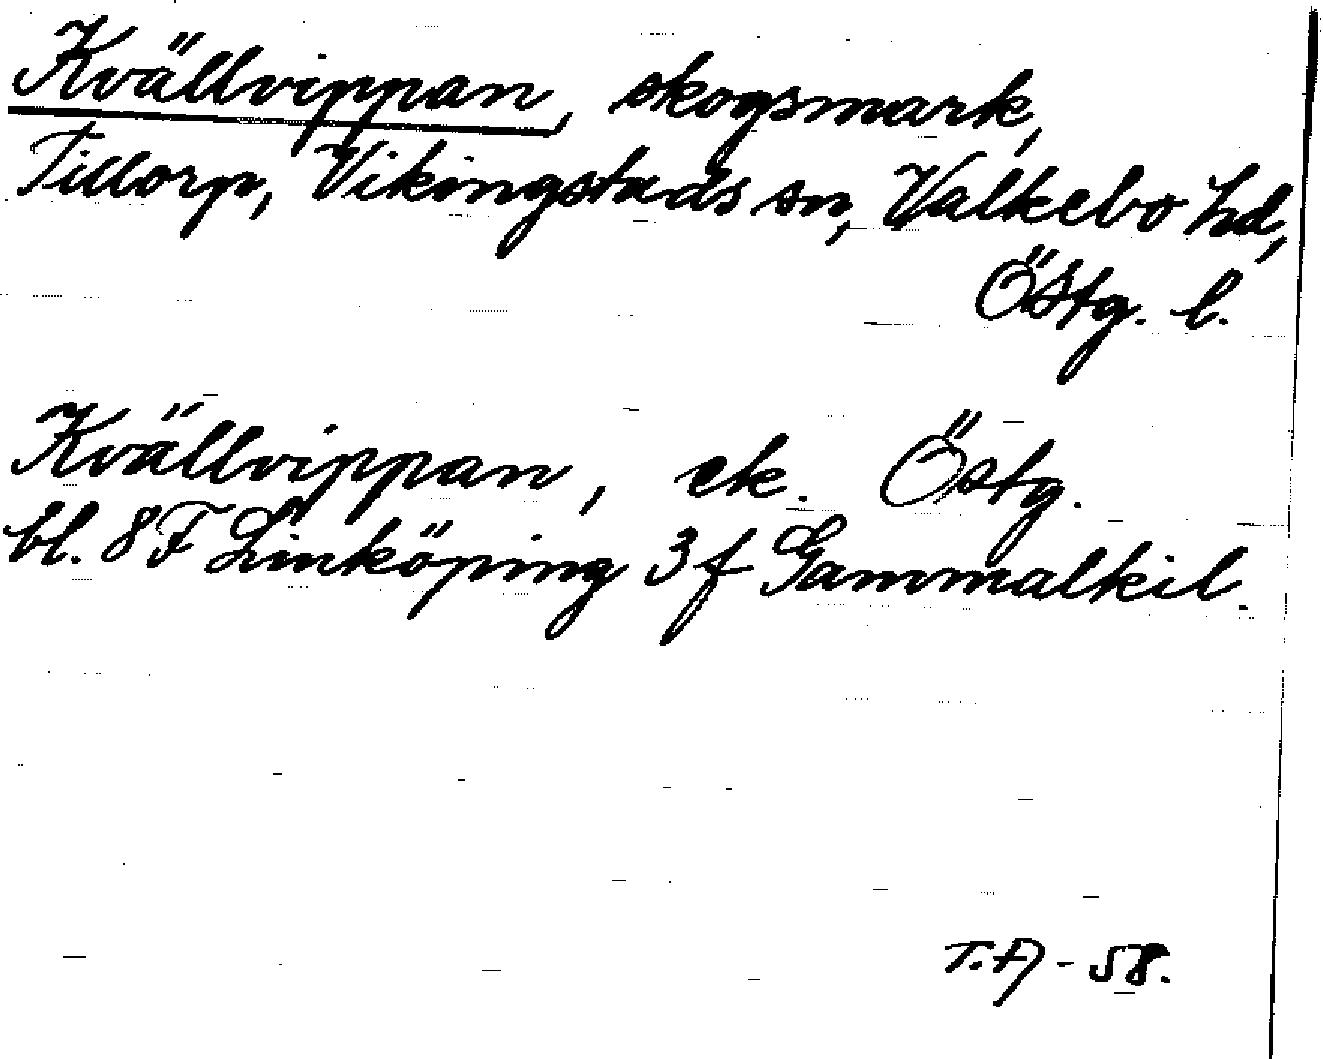 Kvällvippan, skogsmark,
Tillorp, Vikingstads sn, Valkebo hd,
Östg. l.
Kvällvippan, ek. Östg.
bl. 8 F Linköping 3 f Gammalkil.
T.A - 58.